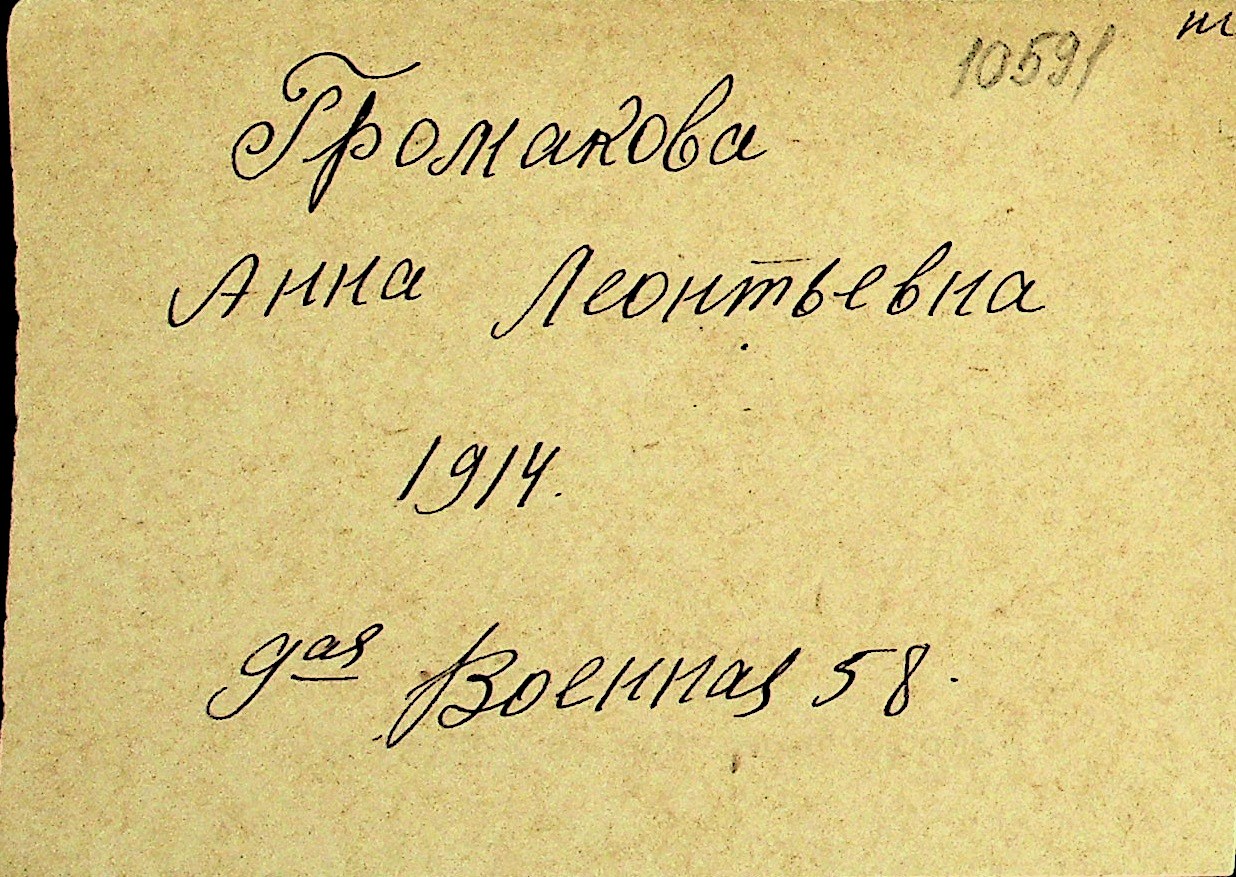 10591
Громакова
Анна Леонтьевна
1914.
9ая Военная 58.